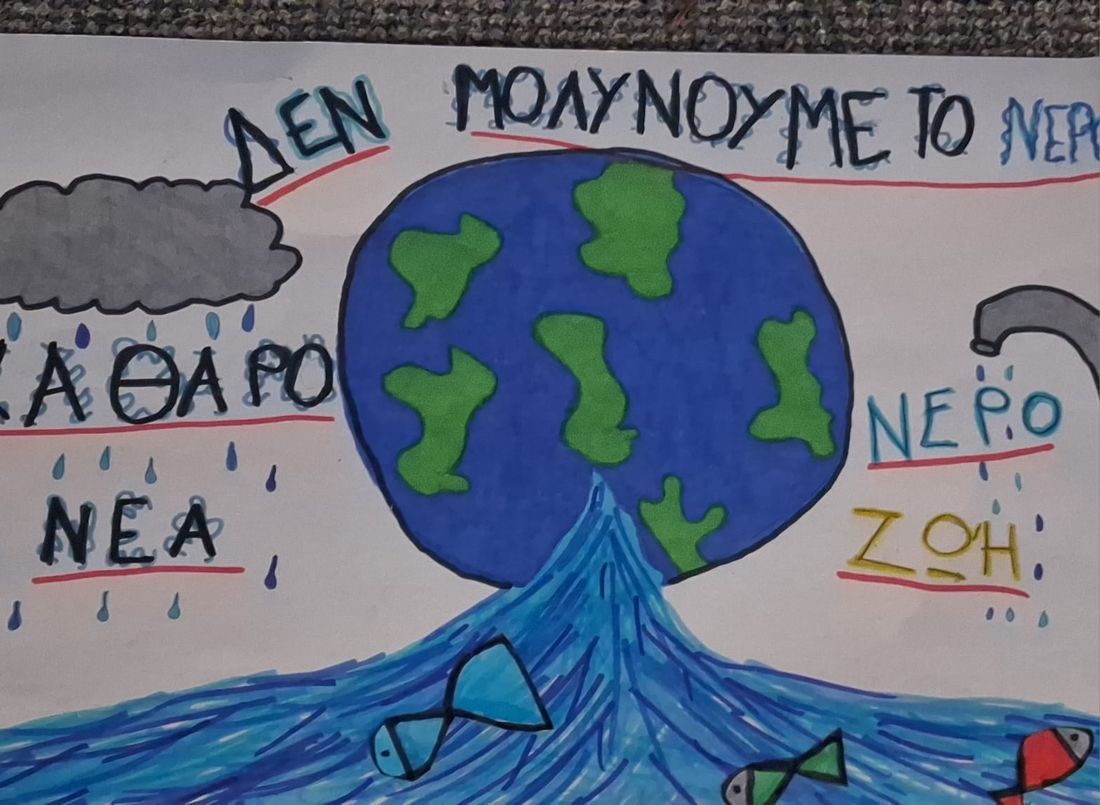 ΔΕΝ ΜΟΛΥΝΟΥΜΕ ΤΟ ΝΕΡΟ
ΚΑΘΑΡΟ
ΝΕΑ
ΝΕΡΟ
ΖΩΉ